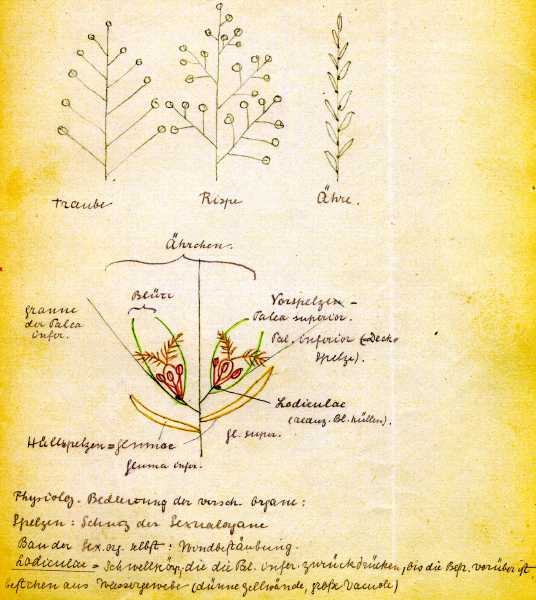 Traube
Rispe
Ähre.
Ährchen.
Granne
der Palea
infer.
Blüte
Vorspelzen –
Palea superior.
Pal. inferior (=Deck-
spelze).
Lodiculae
(reduz. Bl. hüllen).
Hüllspelzen = glumae
gluma infer.
gl. super.
Physiolog. Bedeutung der versch. Organe:
Spelzen: Schutz der Sexualorgane
Bau der Sex. org. selbst: Windbestäubung.
Lodiculae = Schwellkörp., die die Pal. infer. zurückdrücken, bis die Befr. vorüber ist,
bestehen aus Wassergewebe (dünne Zellwände, große Vacuole)